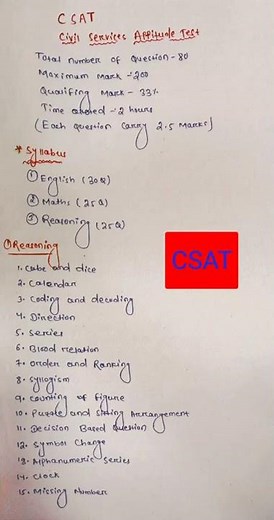 CSAT
Civil Services Aptitude Test
Total number of Question - 80
Maximum Mark - 200
Qualifing Mark - 33%
Time - 2 hours
(Each Question Carry 2.5 Marks)
* Syllabus
① English (30Q)
② Maths (25Q)
③ Reasoning (25Q)
① Reasoning
CSAT
1. Cube and dice
2. Calendar
3. Coding and decoding
4. Direction
5. Series
6. Blood relation
7. Order and Ranking
8. Syllogism
9. Counting of figure
10. Puzzle and Sitting Arrangement
11. Decision Based Question
12. Symbol Change
13. Alphanumeric Series
14. Clock
15. Missing Number